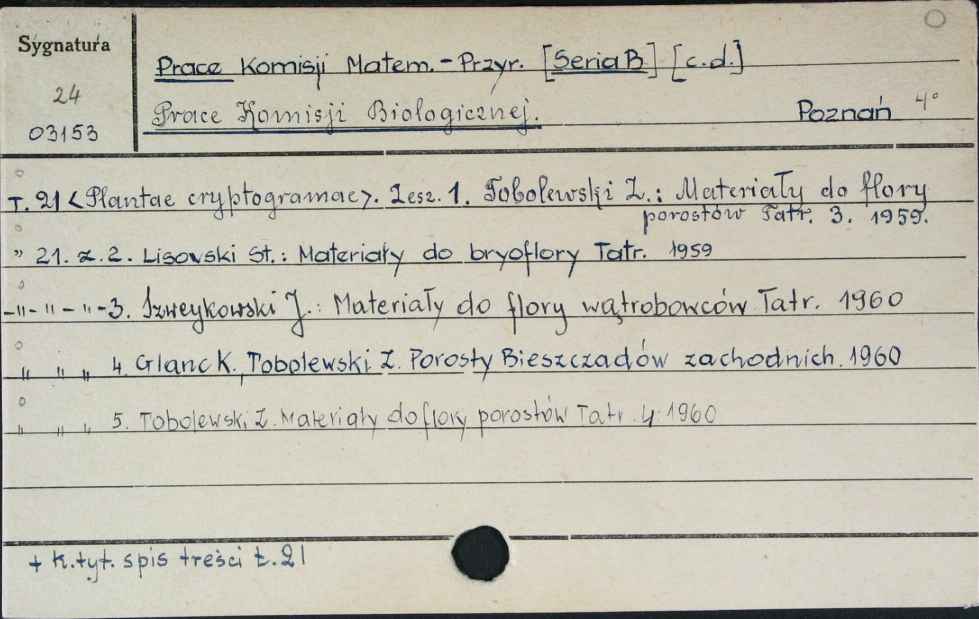 Sygnatura
24
03153
Prace Komisji Matem.-Przyr. [Seria B] [c.d.]
Prace Komisji Biologicznej. Poznań 4°
T. 21 <Plantae cryptogramae>. Zesz. 1. Tobolewski Z.: Materiały do flory
porostów Tatr. 3. 1959.
" 21. z. 2. Lisovski St.: Materiały do bryoflory Tatr. 1959
-"- " - "-3. Szweykowski J.: Materiały do flory wątrobowców Tatr. 1960
" " " 4. Glanc K., Tobolewski Z. Porosty Bieszczadów zachodnich. 1960
" " " 5. Tobolewski Z. Materiały do flory porostów Tatr. 4. 1960
+ k.tyt. spis treści t. 21